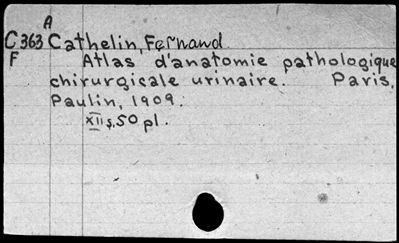 A
C363 Cathelin, Fernand
F Atlas d'anatomie pathologique
chirurgicale urinaire. Paris,
Paulin, 1909.
XII s. 50 pl.